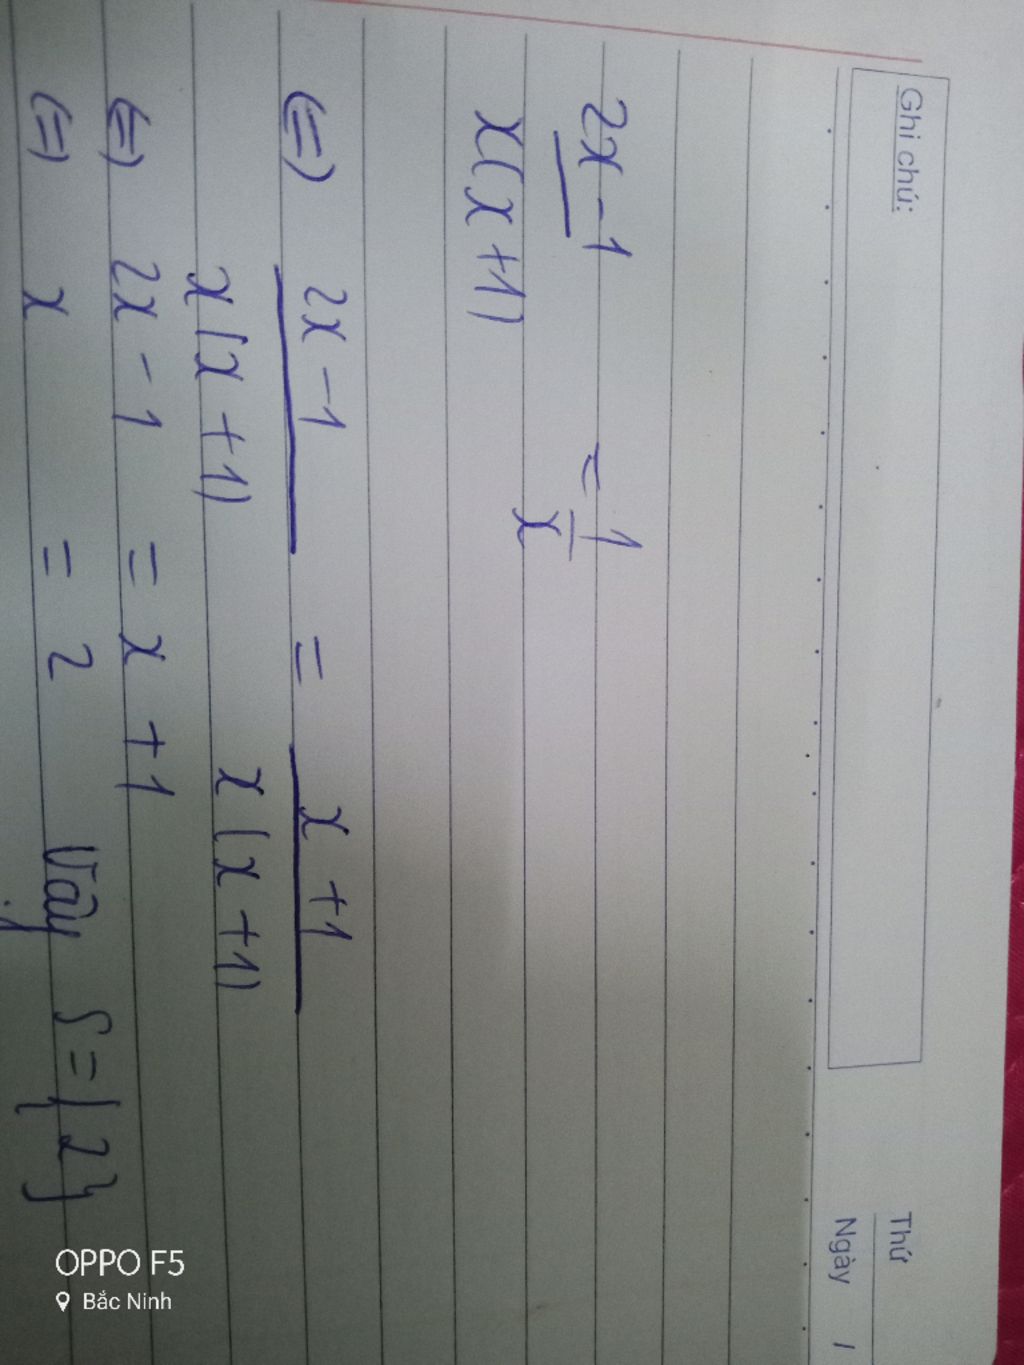 Ghi chú:
Thứ
Ngày /
2x - 1 = 1
x(x + 1) x
(=) 2x - 1 = x + 1
x(x + 1) x(x + 1)
(=) 2x - 1 = x + 1
(=) x = 2 Vậy S = {2}
OPPO F5
Bắc Ninh